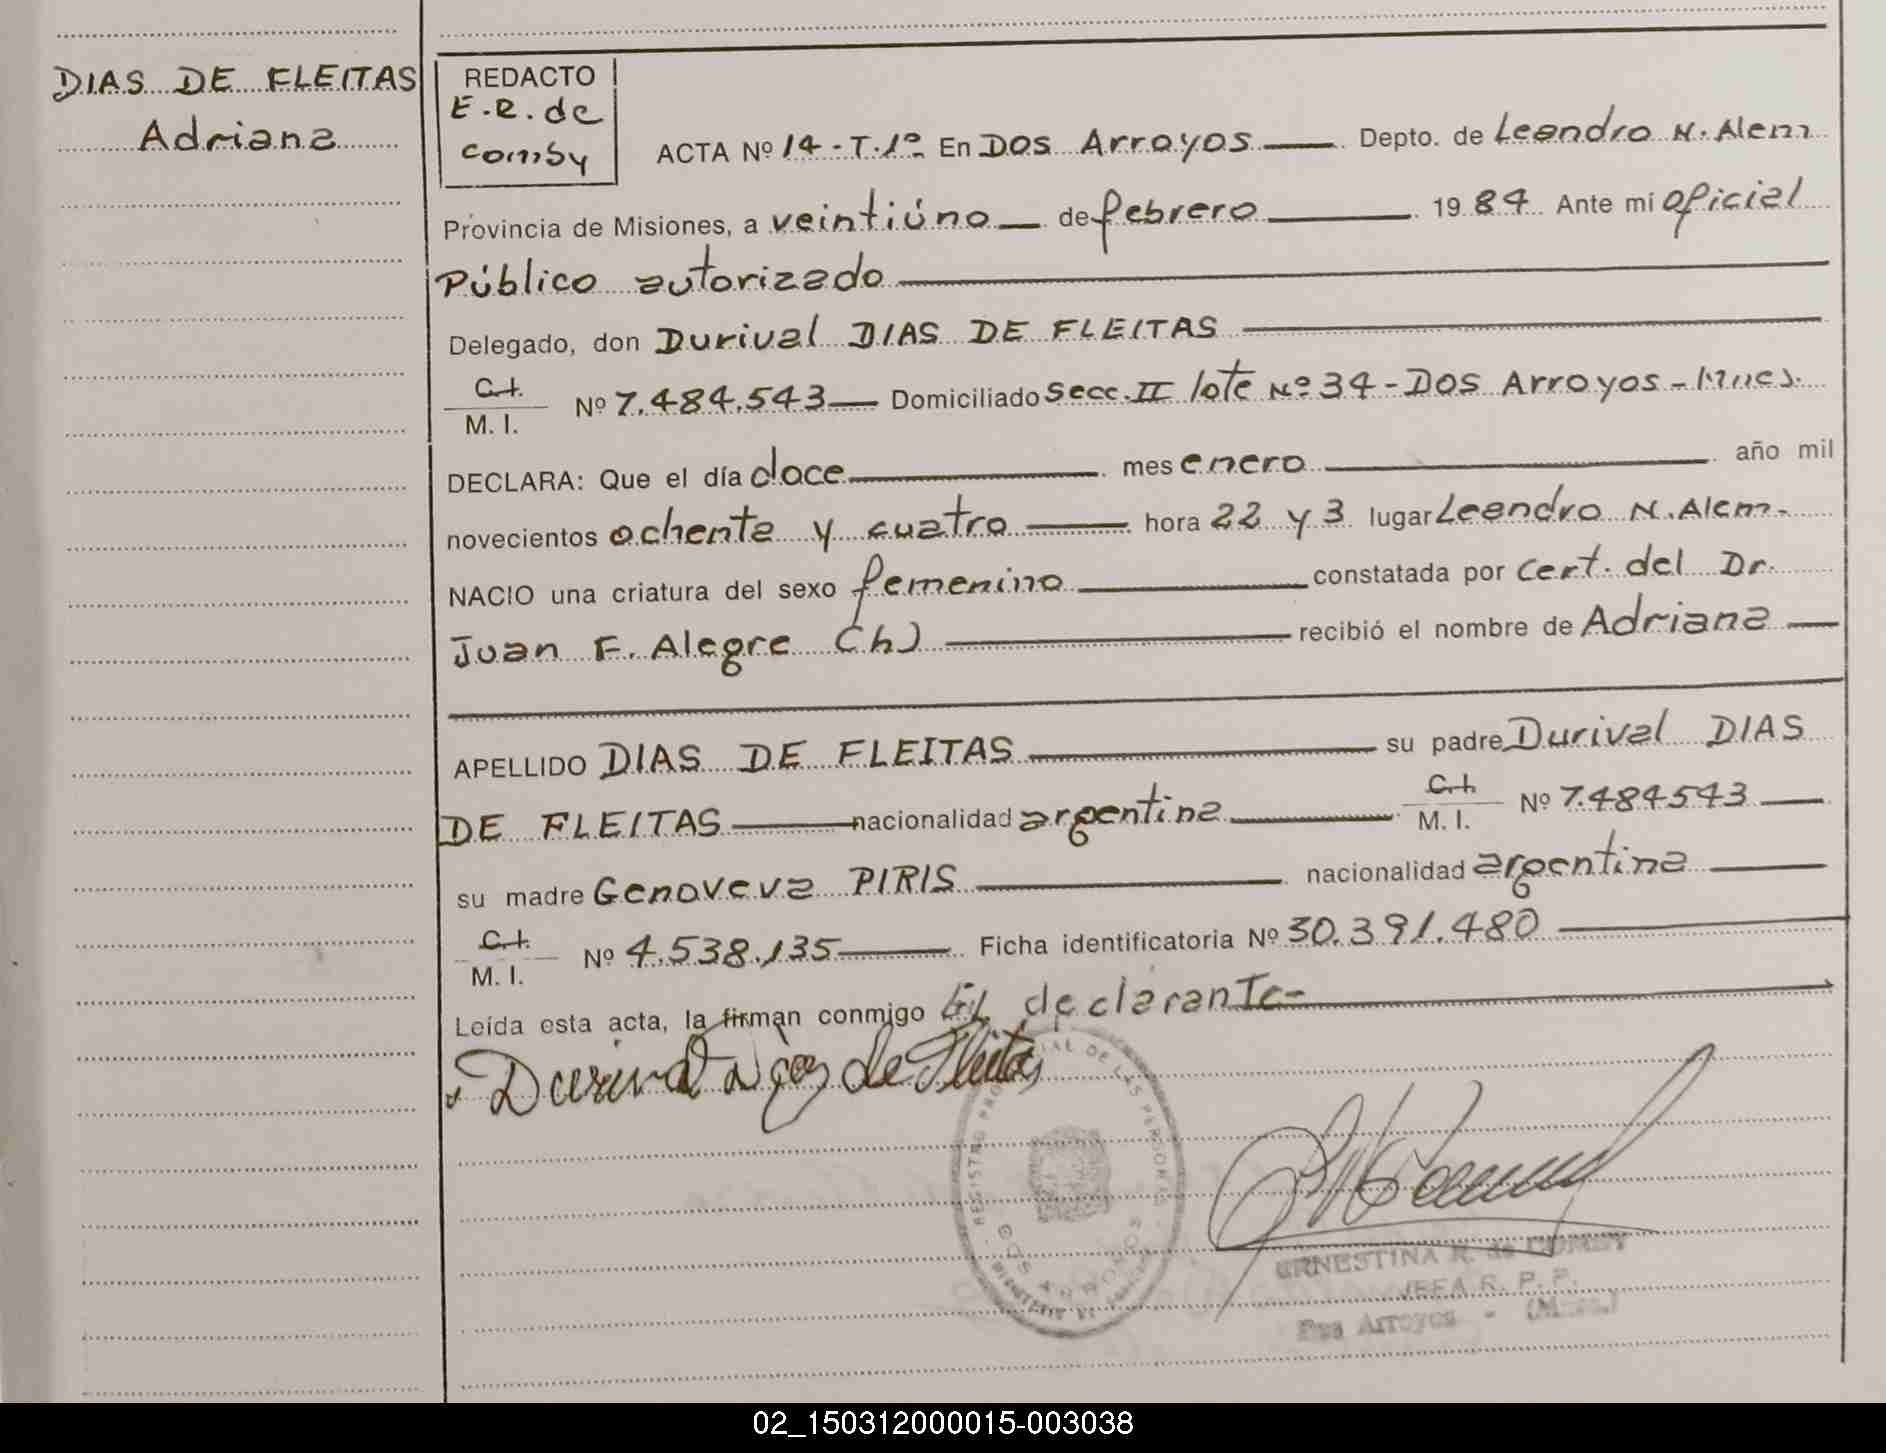 DIAS DE FLEITAS
Adriana
REDACTO
E.R. de
comby
ACTA Nº 14 - T.1º En DOS Arroyos Depto. de Leandro N. Alem
Provincia de Misiones, a veintiúno de febrero 1984 Ante mí oficial
Público autorizado
Delegado, don Durival DIAS DE FLEITAS
C.I.
M. I. Nº 7.484.543 Domiciliado Secc. II lote Nº 34 - DOS Arroyos - Mnes.
DECLARA: Que el día doce mes enero año mil
novecientos ochenta y cuatro hora 22 y 3 lugar Leandro N. Alem.
NACIO una criatura del sexo femenino constatada por cert. del Dr.
Juan F. Alegre (h) recibió el nombre de Adriana
APELLIDO DIAS DE FLEITAS su padre Durival DIAS
DE FLEITAS nacionalidad argentina C.I. M. I. Nº 7.484543
su madre Genoveva PIRIS nacionalidad argentina
C.I.
M. I. Nº 4.538.135 Ficha identificatoria Nº 30.391.480
Leída esta acta, la firman conmigo EL declarante-
Durival Diaz de Fleitas
REGISTRO PROVINCIAL DE LAS PERSONAS
DOS ARROYOS
ERNESTINA R. de COMBY
JEFA R. P. P.
Dos Arroyos - (Mnes.)
02_150312000015-003038